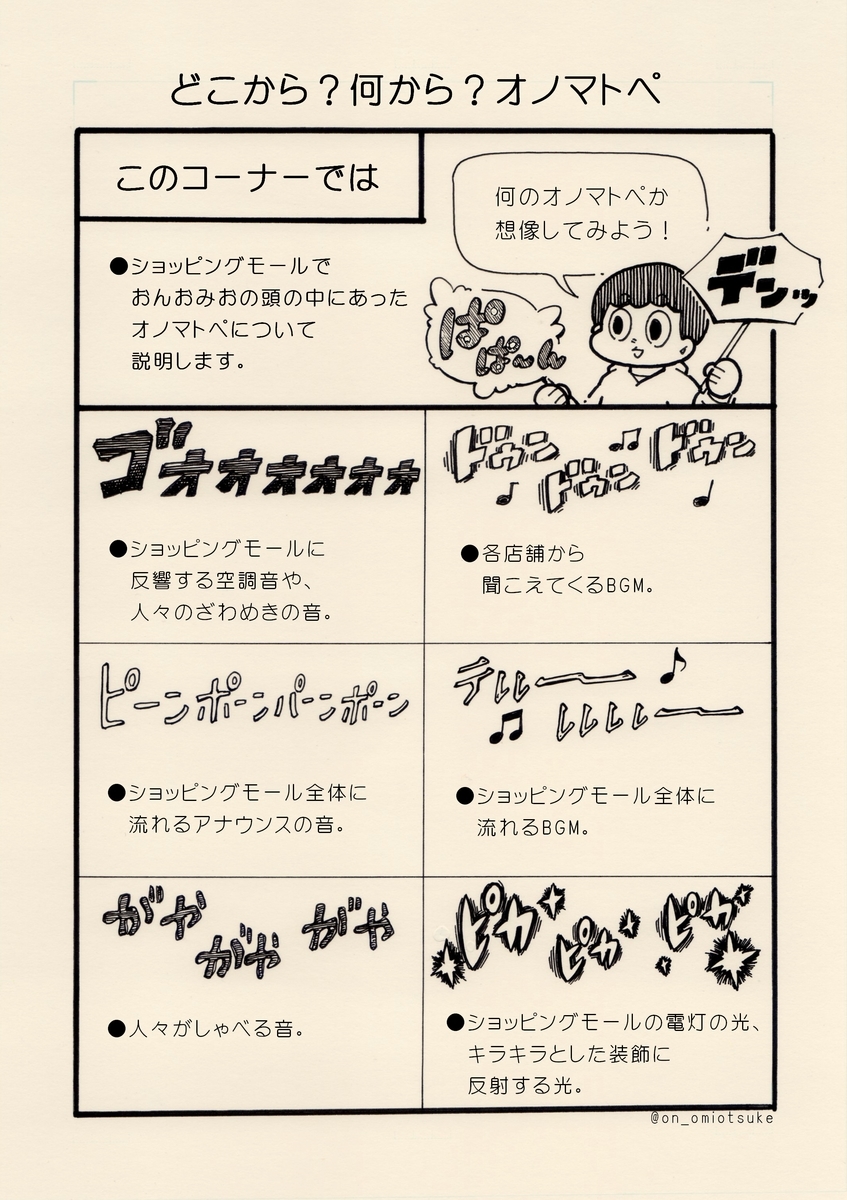 どこから？何から？オノマトペ
このコーナーでは
●ショッピングモールで
おんおみおの頭の中にあった
オノマトペについて
説明します。
何のオノマトペか
想像してみよう！
デンッ
ぱ
ぱーん
ゴォォォォォォ
●ショッピングモールに
反響する空調音や、
人々のざわめきの音。
ドゥン
ドゥン
ドゥン
●各店舗から
聞こえてくるBGM。
ピーンポーンパーンポーン
●ショッピングモール全体に
流れるアナウンスの音。
テレレーー
レレレレーー
●ショッピングモール全体に
流れるBGM。
がや
がや
がや
●人々がしゃべる音。
ピカ
ピカ
ピカ
●ショッピングモールの電灯の光、
キラキラとした装飾に
反射する光。
@on_omiotsuke